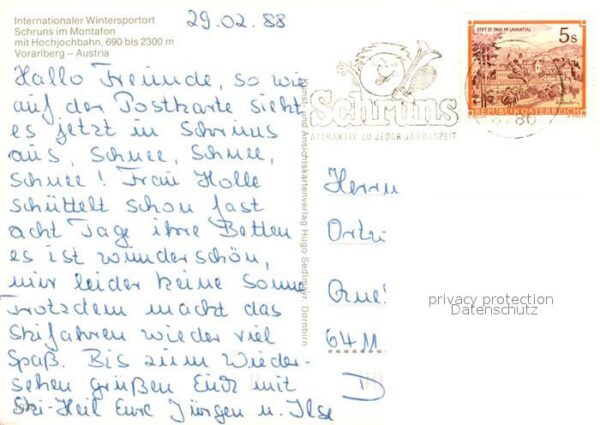 Internationaler Wintersportort
Schruns im Montafon
mit Hochjochbahn, 690 bis 2300 m
Vorarlberg – Austria
29.02.88
Hallo Freunde, so wie
auf der Postkarte sieht
es jetzt in Schruns
aus, Schnee, Schnee,
Schnee! Frau Holle
schüttelt schon fast
acht Tage ihre Betten
es ist wunderschön,
nur leider keine Sonne
Trotzdem macht das
Skifahren wieder viel
Spaß. Bis zum Wieder-
sehen grüßen Euch mit
Ski-Heil Eure Jürgen u. Ilse
Kunst- und Ansichtskartenverlag Hugo Sedlmayr, Dornbirn
Schruns
ATTRAKTIV ZU JEDER JAHRESZEIT
STIFT ST. PAUL IM LAVANTTAL
5 s
REPUBLIK ÖSTERREICH
6780
Herrn
64 11
D
privacy protection
Datenschutz